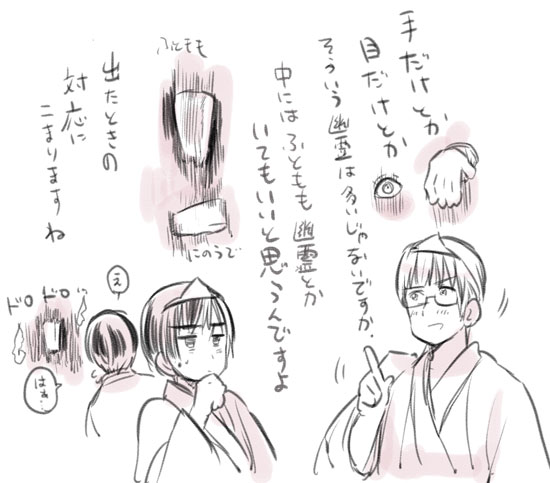 手だけとか
目だけとか
そういう幽霊は多いじゃないですか.
中にはふともも幽霊とか
いてもいいと思うんですよ
ふともも
にのうで
出たときの
対応に
こまりますね
え
ドロドロ
はぁ…